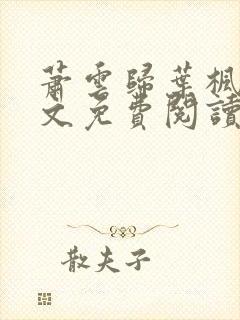 蕭雲歸葉楓
文免費閱讀
散夫子